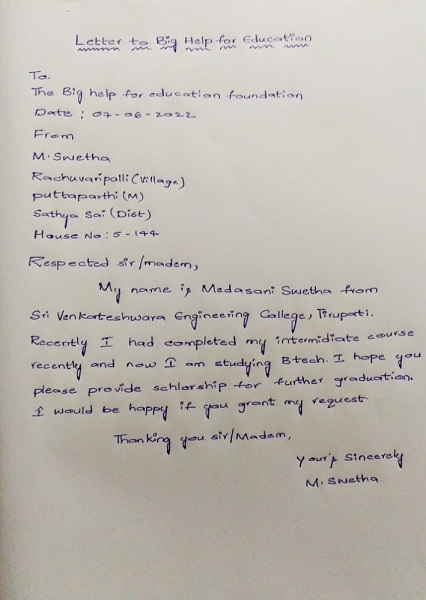 Letter to Big Help for Education
To,
The Big help for education foundation
Date : 07-06-2022
From
M. Swetha
Rachuvaripalli (Village)
puttaparthi (M)
Sathya Sai (Dist)
House No : 5-144
Respected sir/madem,
My name is Medasani Swetha from
Sri Venkateshwara Engineering College, Tirupati.
Recently I had completed my intermidiate course
recently and now I am studying Btech. I hope you
please provide schlarship for further graduation.
I would be happy if you grant my request.
Thanking you sir/Madem,
Your's Sincerely
M. Swetha